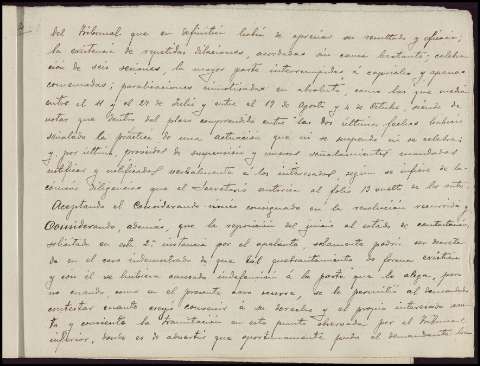 del Tribunal que en definitiva había de apreciar su resultado y eficacia;
la existencia de repetidas dilaciones, acordadas sin causa bastante; celebra-
ción de seis sesiones, la mayor parte interrumpidas á capricho y apenas
comenzadas; paralizaciones inmotivadas en absoluto, como las que median
entre el 11 y el 27 de Julio y entre el 19 de Agosto y 4 de Octubre, siendo de
notar que dentro del plazo comprendido entre las dos últimas fechas habíase
señalado la práctica de una actuación que ni se suspende ni se celebra;
y, por último, proveidos de suspensión y nuevos señalamientos mandados
notificar y notificados verbalmente á los interesados, según se infiere de la
diligencia que el Secretario autoriza al folio 13 vuelto de los autos.
Aceptando el Considerando único consignado en la resolución recurrida, y
Considerando, además, que la reposición del juicio al estado de contestación,
solicitada en esta 2ª instancia por el apelante, solamente podría ser decreta-
da en el caso indemostrado de que tal quebrantamiento de forma existiera
y con él se hubiera causado indefensión á la parte que lo alega, pero
no cuando, como en el presente caso ocurre, se le permitió al demandado
contestar cuanto creyó convenir á su derecho y el propio interesado acep-
ta y consiente la tramitación en este punto observada por el Tribunal
inferior, donde es de advertir que oportunamente pudo el demandante